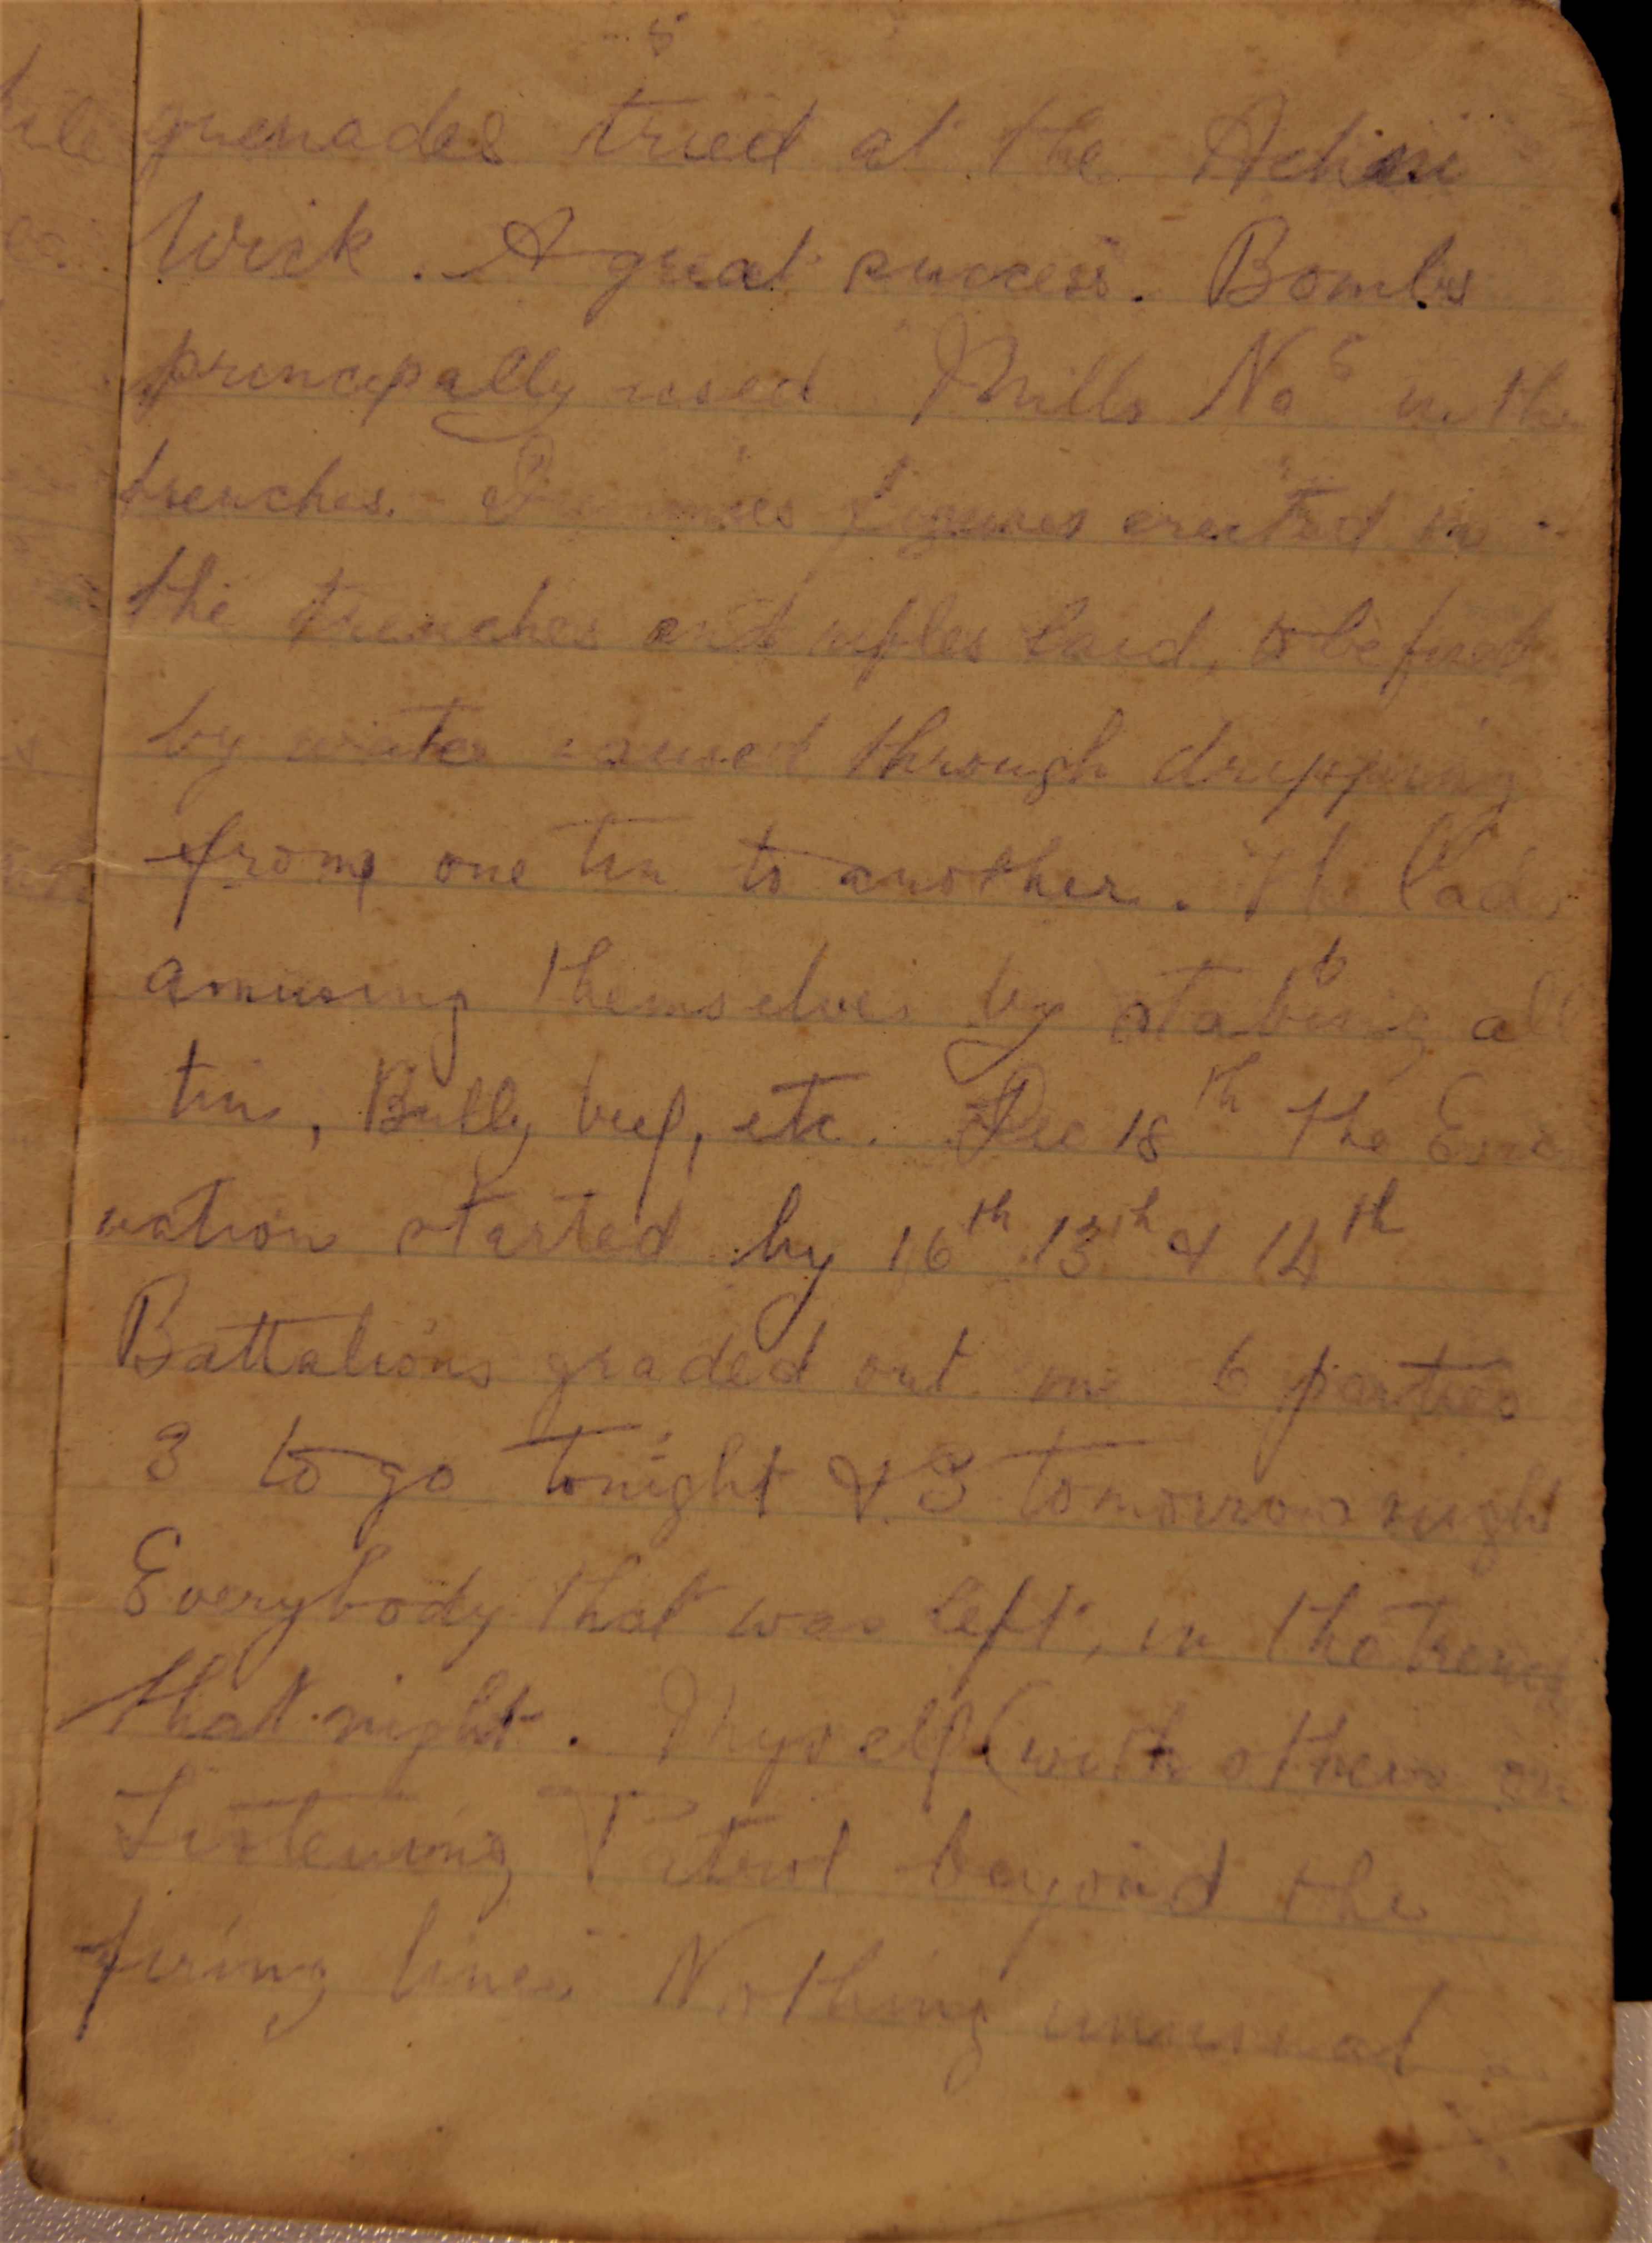 5
grenades tried at the
Wick. A great success. Bombs
principally used Mills No 5 in the
trenches. figures erected in
the trenches and rifles laid, to be fired
by water caused through dripping
from one tin to another. The lads
amusing themselves by stabbing all
tins, Bully beef, etc. Dec 18th The Evac
uation started by 16th 13th & 14th
Battalions graded out in 6 parties
3 to go tonight & 3 tomorrow night
Everybody that was left, in the trench
that night. Myself (with others on
Listening Patrol beyond the
firing line. Nothing unusual